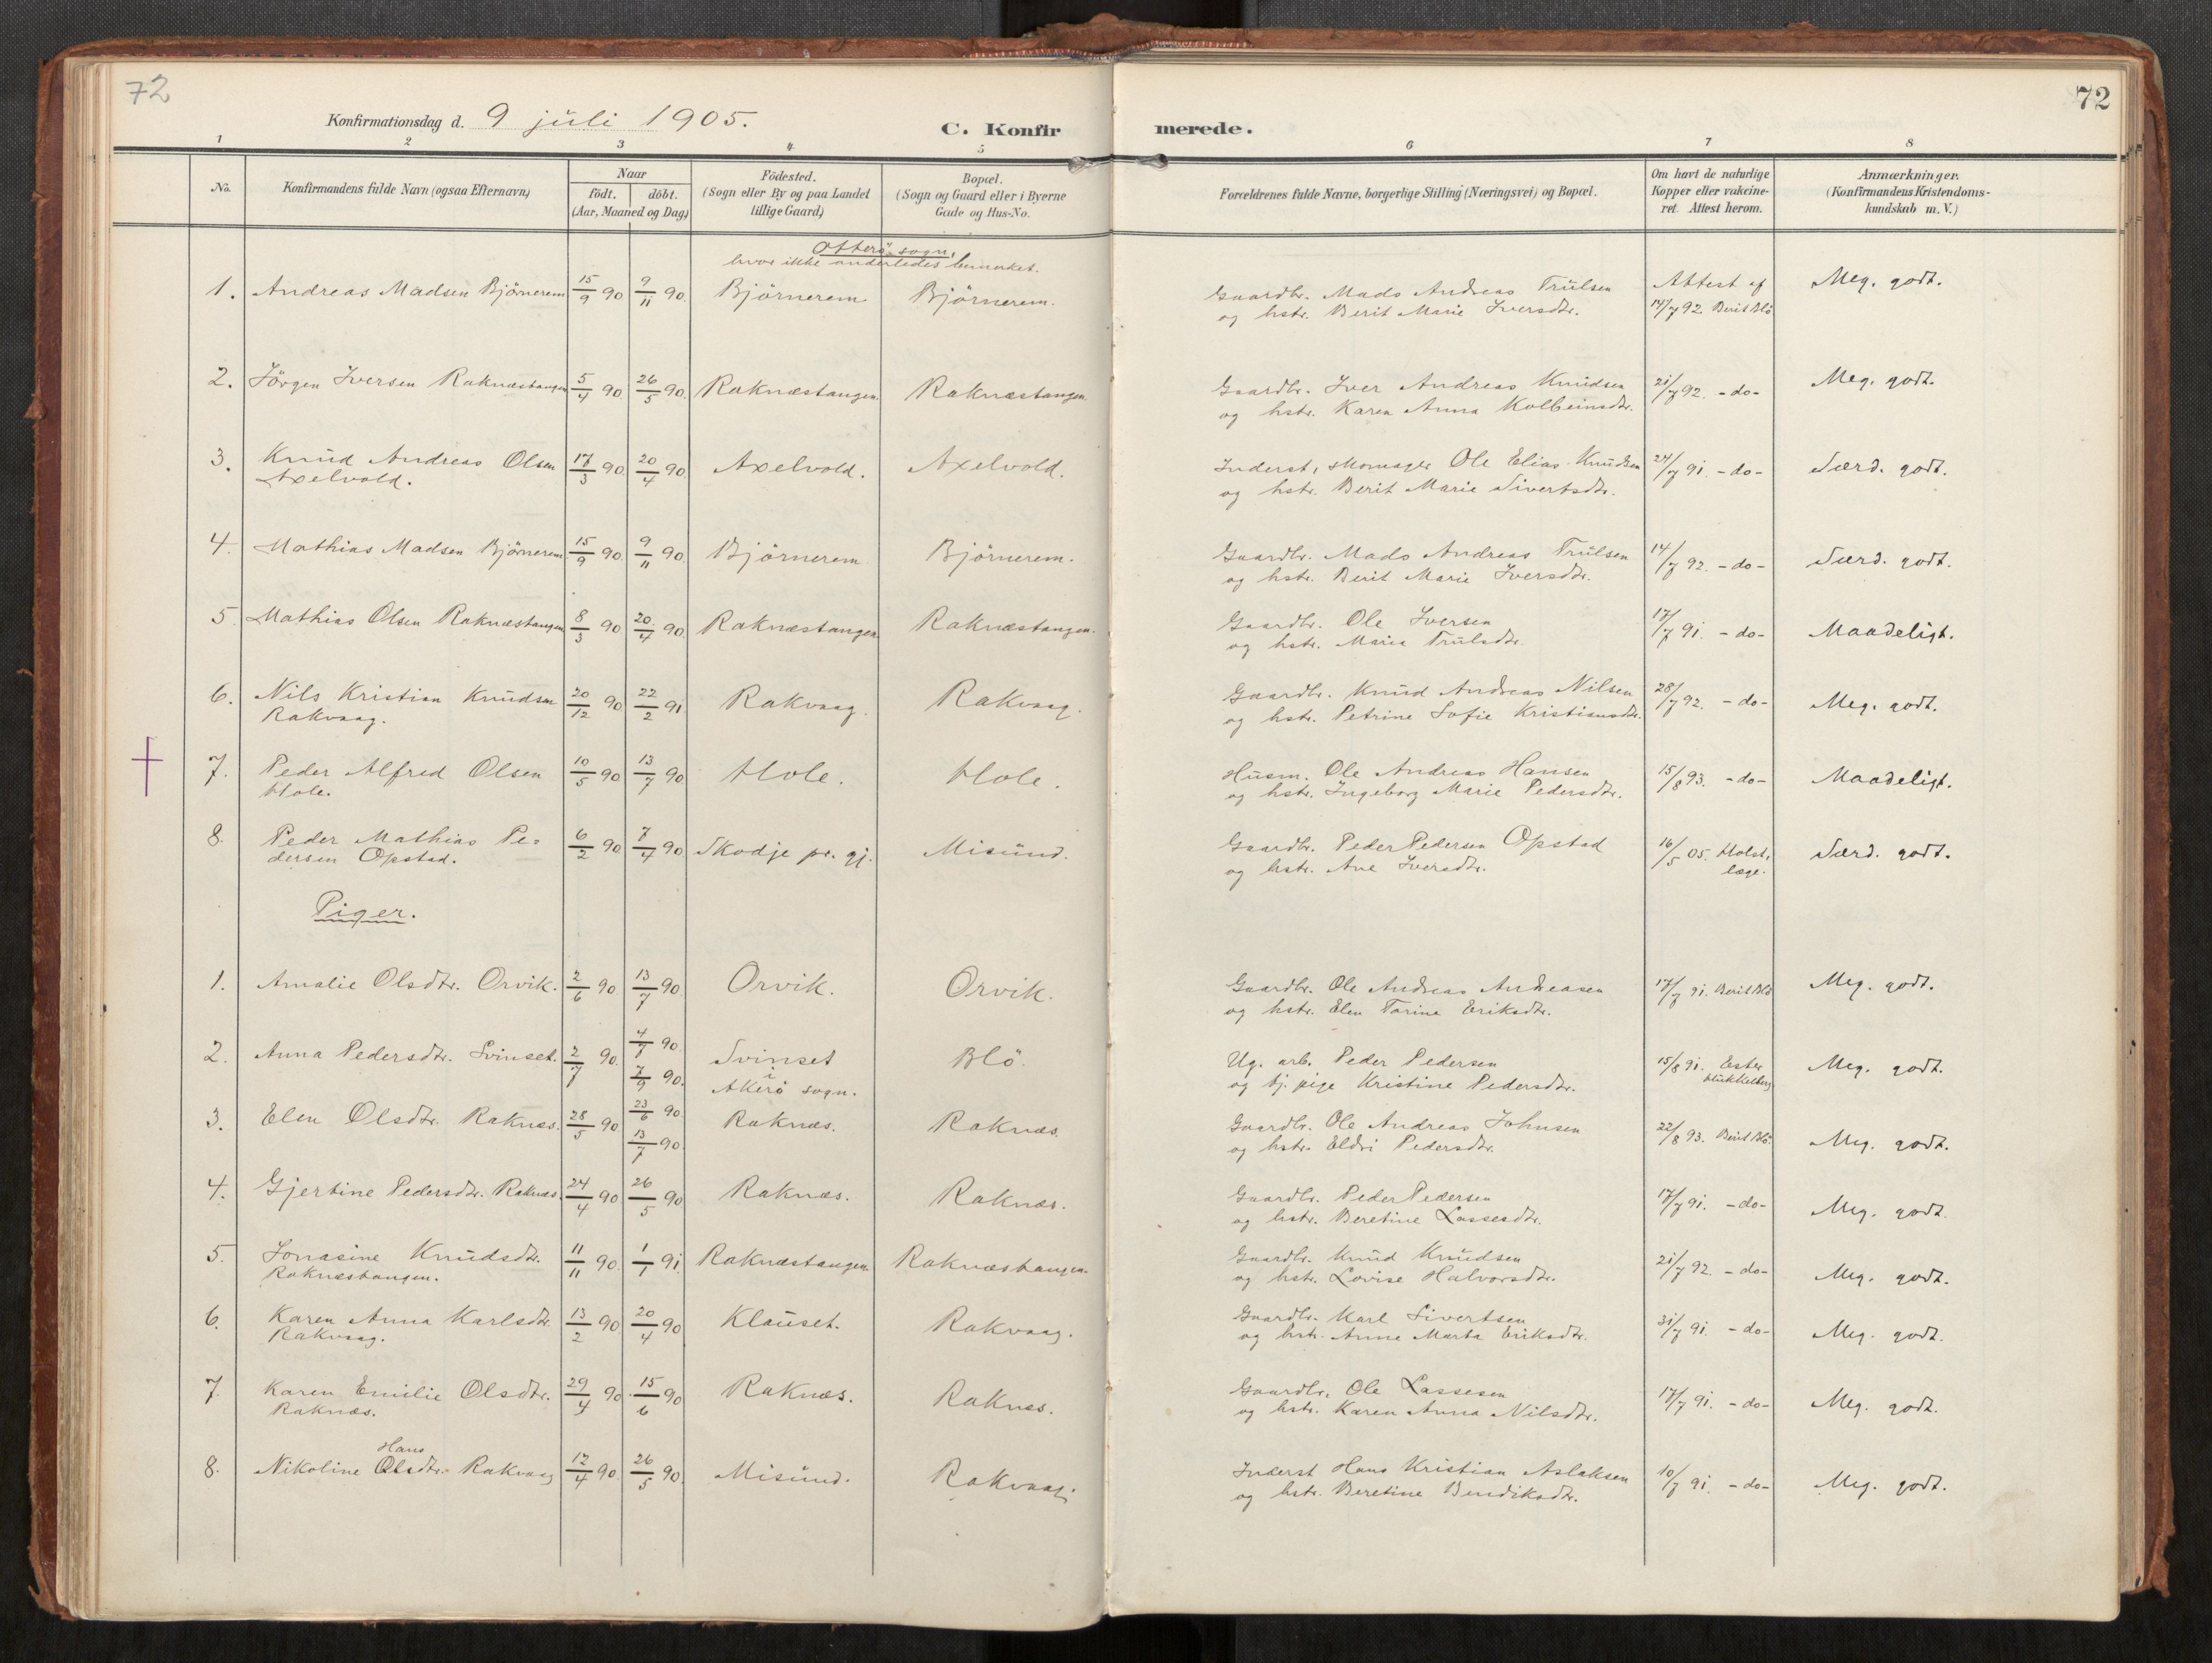 72
72
Konfirmationsdag d. 9 juli 1905.
C. Konfirmerede.
1 2 3 4 5 6 7 8
No.
Konfirmandens fulde Navn (ogsaa Efternavn)
Naar
födt. döbt.
(Aar, Maaned og Dag)
Födested.
(Sogn eller By og paa Landet
tillige Gaard)
Bopæl.
(Sogn og Gaard eller i Byerne
Gade og Hus-No.
Forældrenes fulde Navne, borgerlige Stilling (Næringsvei) og Bopæl.
Om havt de naturlige
Kopper eller vakcine-
ret. Attest herom.
Anmærkninger.
(Konfirmandens Kristendoms-
kundskab m. V.)
Otterö sogn,
hvor ikke anderledes bemerket.
1. Andreas Madsen Björnerem 15/9 90 9/11 90. Björnerem Björnerem. Gaardbr. Mads Andreas Trulsen Attest af Meg. godt.
og hstr. Berit Marie Iversdtr. 14/7 92. Berit Blö
2. Jörgen Iversen Raknæstangen 5/4 90 26/5 90. Raknæstangen. Raknæstangen. Gaardbr. Iver Andreas Knudsen 21/7 92. -do- Meg. godt.
og hstr. Karen Anna Kolbeinsdtr.
3. Knud Andreas Olsen 17/3 90 20/4 90. Axelvold. Axelvold. Inderst, skomager Ole Elias Knudsen 24/7 91. -do- Særd. godt.
Axelvold. og hstr. Berit Marie Sivertsdtr.
4. Mathias Madsen Björnerem 15/9 90. 9/11 90. Björnerem. Björnerem. Gaardbr. Mads Andreas Trulsen 14/7 92. -do- Særd. godt.
og hstr. Berit Marie Iversdtr.
5. Mathias Olsen Raknæstangen 8/3 90 20/4 90. Raknæstangen. Raknæstangen. Gaardbr. Ole Iversen 17/7 91. -do- Maadeligt.
og hstr. Marie Trulsdtr.
6. Nils Kristian Knudsen 20/12 90 22/2 91 Rakvaag. Rakvaag. Gaardbr. Knud Andreas Nilsen 28/7 92. -do- Meg. godt.
Rakvaag. og hstr. Petrine Sofie Kristiansdtr.
7. Peder Alfred Olsen 10/5 90 13/7 90 Hole. Hole. Husm. Ole Andreas Hansen 15/8 93. -do- Maadeligt.
Hole. og hstr. Ingeborg Marie Pedersdtr.
8. Peder Mathias Pe- 6/2 90 7/4 90 Skodje pr. gj. Misund. Gaardbr. Peder Pedersen Opstad 16/5 05. Holst, Særd. godt.
dersen Opstad. og hstr. Ane Iversdtr. læge.
Piger.
1. Amalie Olsdtr. Orvik. 2/6 90 13/7 90 Orvik. Orvik. Gaardbr. Ole Andreas Andreasen 17/7 91. Berit Blö Meg. godt.
og hstr. Elen Tarine Eriksdtr.
2. Anna Pedersdtr. Svinset. 2/7 90. 4/7 90. Svinset Blö. Ug. arb. Peder Pedersen 15/8 91. Ester Meg. godt.
7/9 90. i Akerö sogn. og tj. pige Kristine Pedersdtr.
3. Elen Olsdtr. Raknæs. 28/5 90 23/6 90 Raknæs. Raknæs. Gaardbr. Ole Andreas Johnsen 22/8 93. Berit Blö Meg. godt.
13/7 90. og hstr. Eldri Pedersdtr.
4. Gjertine Pedersdtr. Raknæs. 24/4 90 26/5 90 Raknæs. Raknæs. Gaardbr. Peder Pedersen 17/7 91. -do- Meg. godt.
og hstr. Beretine Lassesdtr.
5. Jonasine Knudsdtr. 11/11 90 1/1 91 Raknæstangen. Raknæstangen. Gaardbr. Knud Knudsen 21/7 92. -do- Meg. godt.
Raknæstangen. og hstr. Lovise Halvorsdtr.
6. Karen Anna Karlsdtr. 13/2 90 20/4 90 Klauset. Rakvaag. Gaardbr. Karl Sivertsen 31/7 91. -do- Meg. godt.
Rakvaag. og hstr. Anne Marta Eriksdtr.
7. Karen Emilie Olsdtr. 29/4 90. 15/6 90 Raknæs. Raknæs. Gaardbr. Ole Lassesen 17/7 91. -do- Meg. godt.
Raknæs. og hstr. Karen Anna Nilsdtr.
Hans
8. Nikoline Olsdtr. Rakvaag 12/4 90. 26/5 90. Misund. Rakvaag. Inderst Hans Kristian Aslaksen 10/7 91. -do- Meg. godt.
og hstr. Beretine Bendiksdtr.